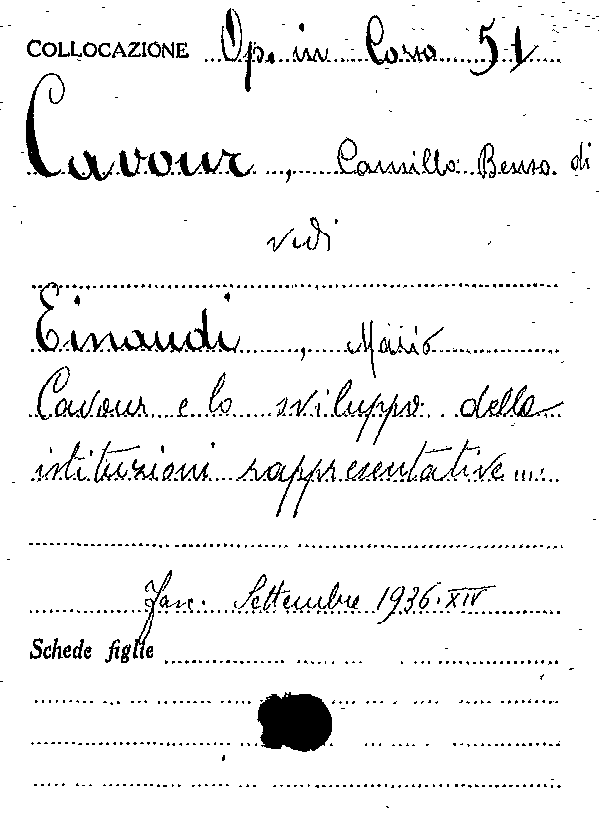 COLLOCAZIONE Op. in Corso 51
Cavour, Camillo Benso di
vedi
Einaudi, Mario
Cavour e lo sviluppo delle
istituzioni rappresentative....
Fasc. Settembre 1936.XIV
Schede figlie